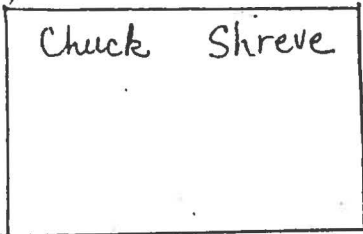 Chuck Shreve